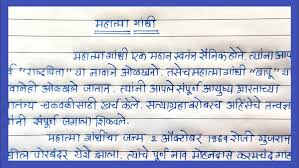 महात्मा गांधी
महात्मा गांधी एक महान स्वतंत्र सैनिक होते. त्यांना आपण
"राष्ट्रपिता" या नावाने ओळखतो. तसेच महात्मा गांधी "बापू" या
नावानेही ओळखले जातात. त्यांनी आपले संपूर्ण आयुष्य भारताच्या
चळवळीसाठी खर्च केले. सत्याग्रहाबरोबरच अहिंसेचे तत्वज्ञा
नी संपूर्ण जगाला शिकवले.
महात्मा गांधीचा जन्म 2 ऑक्टोबर 1869 रोजी गुजरात
पोरबंदर येथे झाला. त्यांचे पूर्ण नाव मोहनदास करमचंद गा